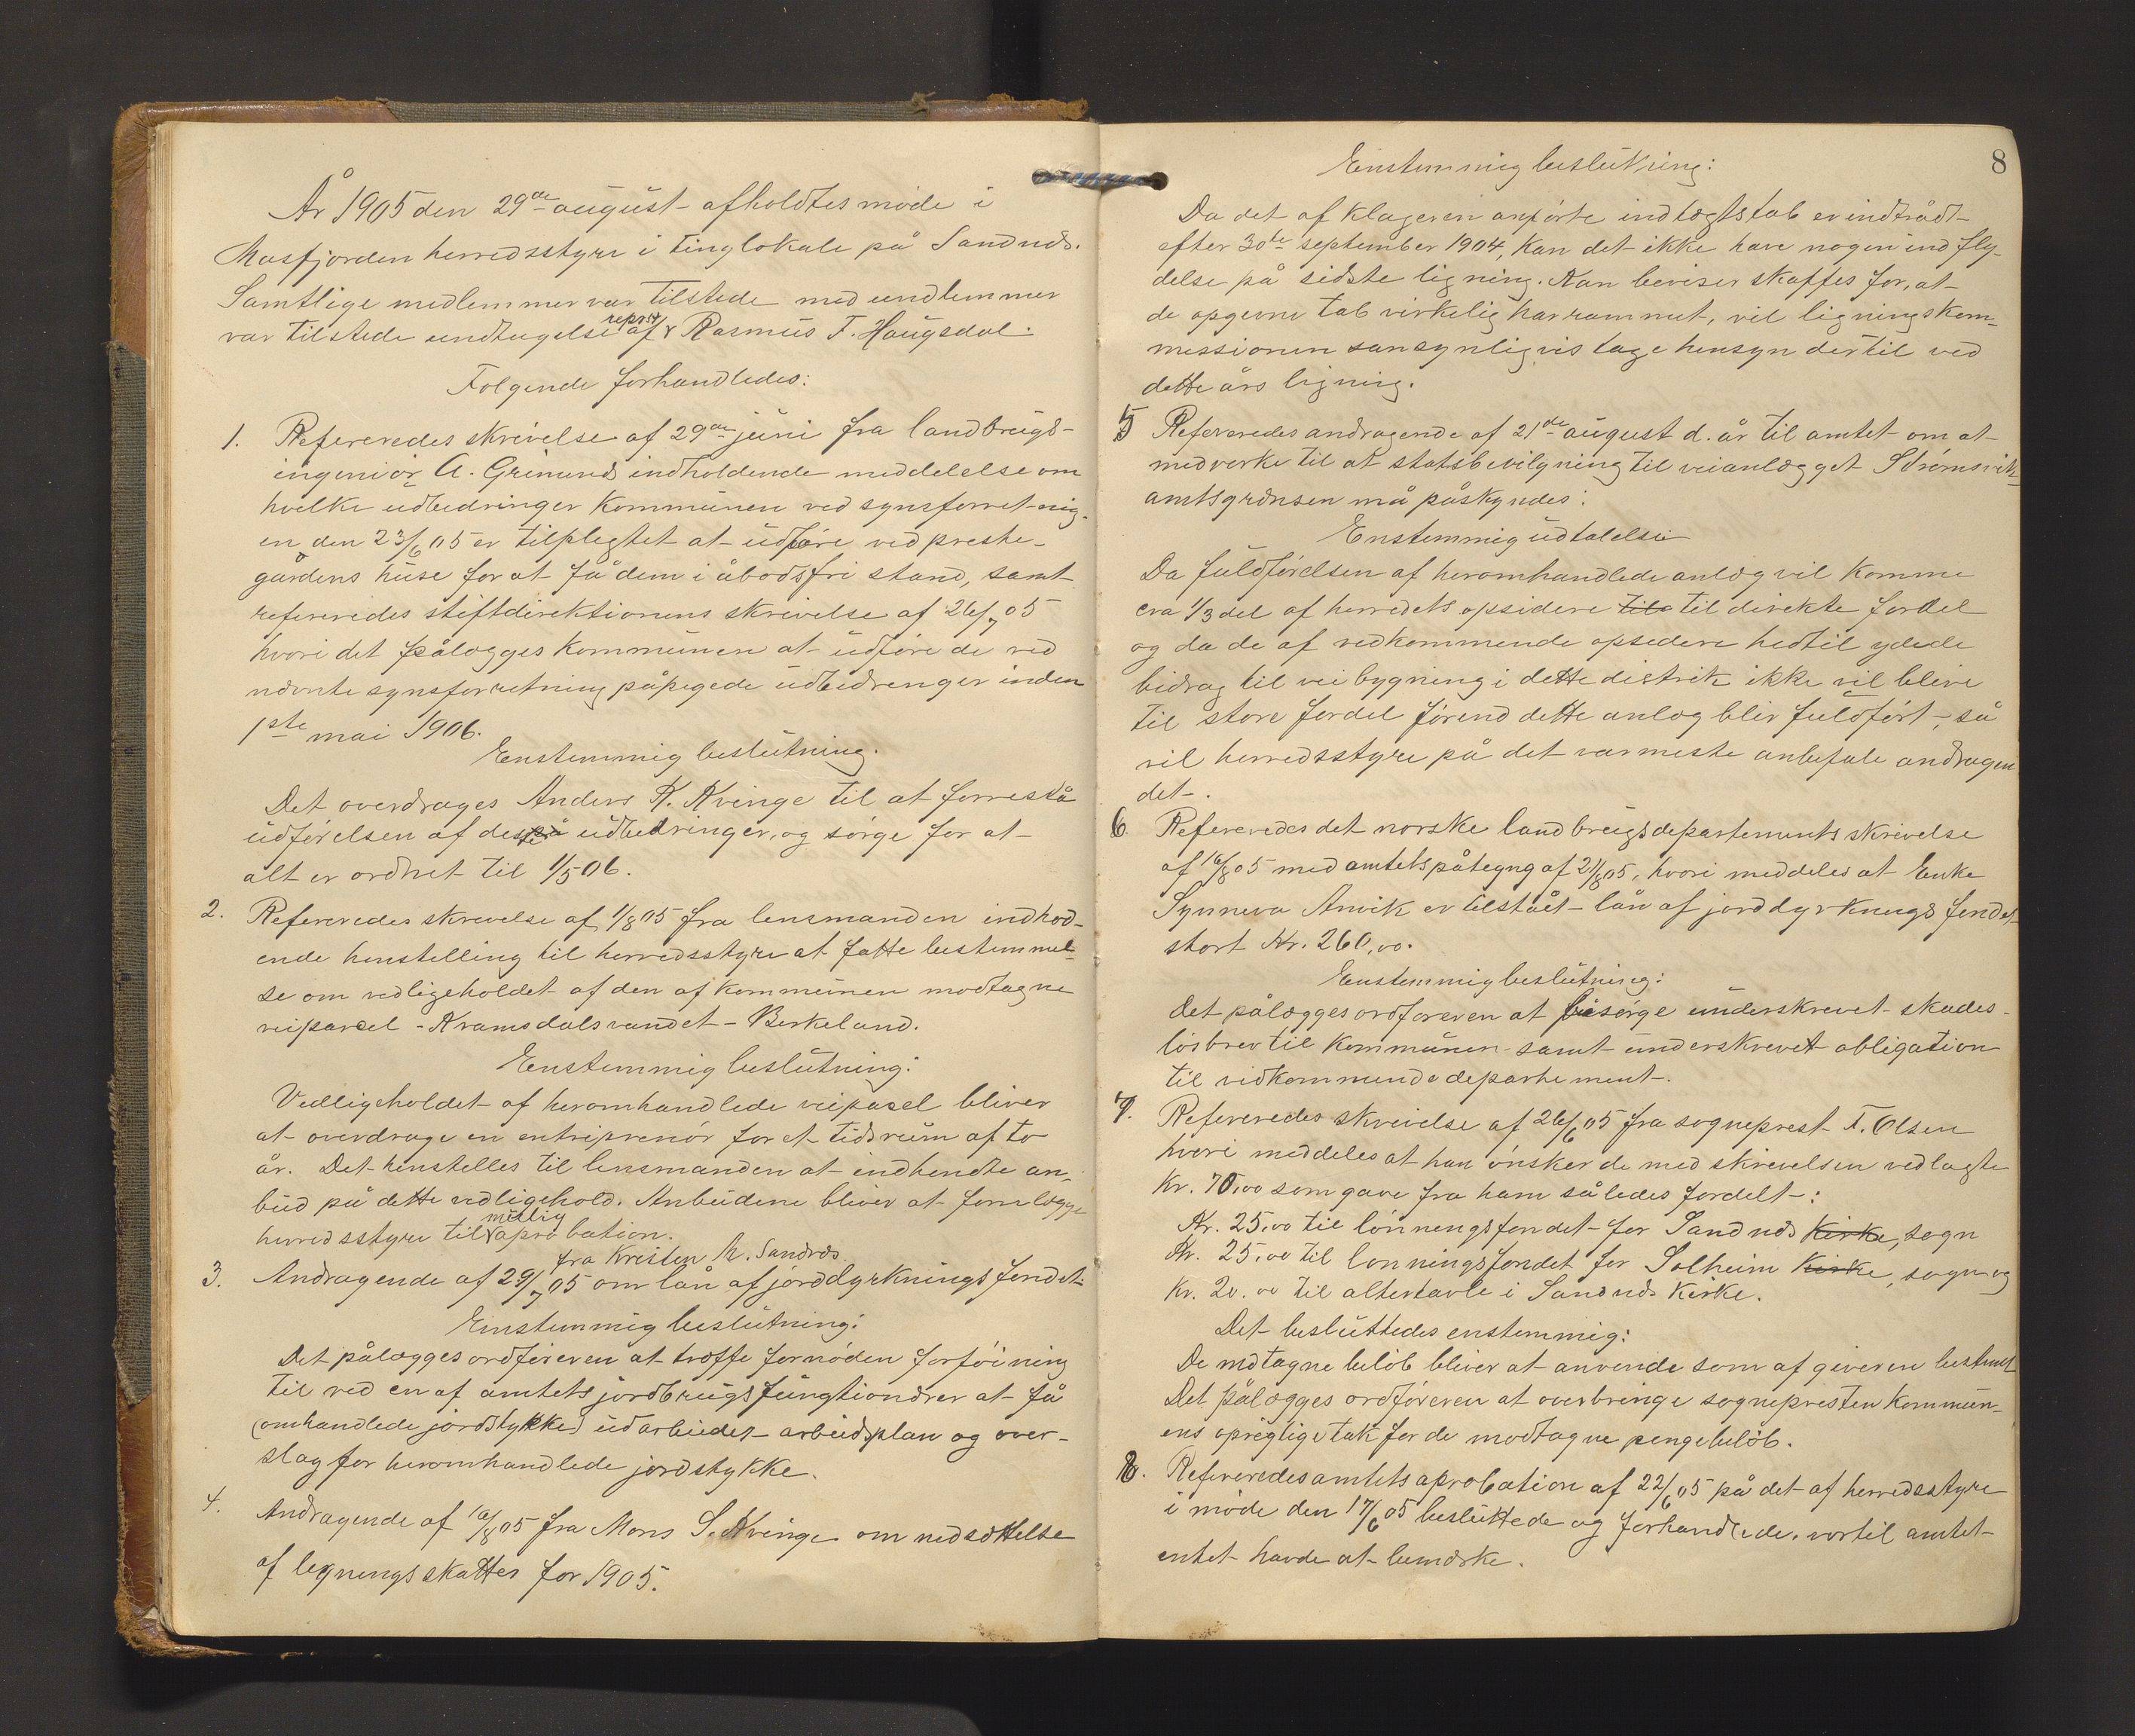 År 1905 den 29de august afholdtes møde i
Masfjorden herredsstyre i tinglokale på Sandnæs.
Samtlige medlemmer var tilstede med undtemmer
var tilstede undtagelse af reprst Rasmus T. Haugsdal.
Følgende forhandledes:
1. Refereredes skrivelse af 29de juni fra landbrugs-
ingeniør A. Grimund indholdende meddelelse om
hvilke udbedringer kommunen ved synsforretnig-
en den 23/6 05 er tilplegtet at udføre ved preste-
gårdens huse for at få dem i åbodsfri stand, samt
refereredes stiftdirektionens skrivelse af 26/7 05
hvori det pålægges kommunen at udføre de ved
nævnte synsforretning påpegede udbedrenger inden
1ste mai 1906.
Enstemmig beslutning.
Det overdrages Anders K. Kvinge til at forrestå
udførelsen af deste udbedringer, og sørge for at
alt er ordnet til 1/5 06.
2. Refereredes skrevelse af 1/8 05 fra lensmanden indhod-
ende henstelling til herredsstyre at fatte bestemmel-
se om vedligeholdet af den af kommunen modtagne
veiparcel - Kramsdalsvandet - Birkeland.
Enstemmig beslutning:
Vedligeholdet af heromhandlede veipasel bliver
at overdrage en entriprenør for et tidsrum af to
år. Det henstelles til lensmanden at indhendte an-
bud på dette vedligehold. Anbudene bliver at forelægge
herredsstyre til mulig aprobation.
3. Andragende af 29/7 05 fra Kristen M. Sandnæs om lån af jorddyrkningsfondet:
Enstemmig beslutning:
Det pålægges ordføreren at træffe fornøden forføining
til ved en af amtets jordbrugsfungtionærer at få
(omhandlede jordstykke) udarbeidet arbeidsplan og over-
slag for heromhandlede jordstykke.
4. Andragende af 16/8 05 fra Mons S. Kvinge om nedsættelse
af legningsskatter for 1905.
8
Enstemmig beslutning:
Da det af klageren anførte indtægtstab er indtrådt
efter 30te september 1904, kan det ikke have nogen indfly-
delse på sidste ligning. Kan beviser skaffes for, at
de opgevne tab virkelig har rammet, vil ligningskom-
messionen sansynligvis tage hensyn dertil ved
dette års ligning.
5 Refereredes andragende af 21de august d. år til amtet om at
medverke til at statsbevilgning til veianlægget Strømsvik-
amtsgrænsen må påskyndes:
Enstemmig udtalelse
Da fuldførelsen af heromhandlede anlæg vil komme
cra 1/3 del af herredets opsidere til til direkte fordel
og da de af vedkommende opsedere hedtil ydede
bidrag til veibygning i dette distrik ikke vil blive
til store fordel førend dette anlæg blir fuldført, så
vil herredsstyre på det varmeste anbefale andragen
det.
6. Refereredes det norske landbrugsdepartements skrivelse
af 16/8 05 med amtets påtegng af 21/8 05, hvori meddeles at Enke
Synneva Anvik er tilstået lån af jorddyrkningsfondet
stort Kr. 260,00.
Enstemmig beslutning:
Det pålægges ordføreren at besørge underskrevet skades-
løsbrev til kommunen samt underskrevet obligation
til vedkommende departement.
7. Refereredes skreivelse af 26/6 05 fra sogneprest T. Olsen
hvori meddeles at han ønsker de med skrevelsen vedlagte
Kr. 70,00 som gave fra ham således fordelt:
Kr. 25,00 til lønnengsfondet for Sandnæs kirke, sogn
Kr. 25,00 til lønningsfondet for Solheim kirke, sogn og
Kr. 20,00 til altertavle i Sandnæs kirke.
Det besluttedes enstemmig:
De mdtagne beløb bliver at anvende som af giveren bestemt
Det pålægges ordføreren at overbringe sognepresten kommun-
ens oprigtige tak for de modtagne pengebeløb.
8. Refereredes amtets aprobation af 22/6 05 på det af herredsstyre
i møde den 17/6 05 besluttede og forhandlede, vortil amtet
entet havde at bemærke.